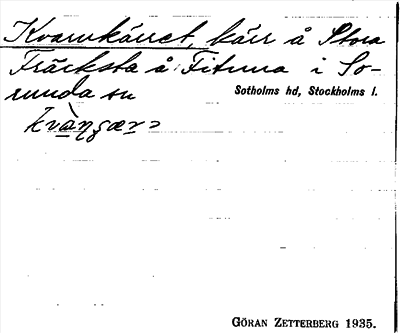 Kvarnkärret, kärr å Stora
Fräcksta å Fituna i So-
runda sn Sotholms hd, Stockholms l.
GÖRAN ZETTERBERG 1935.